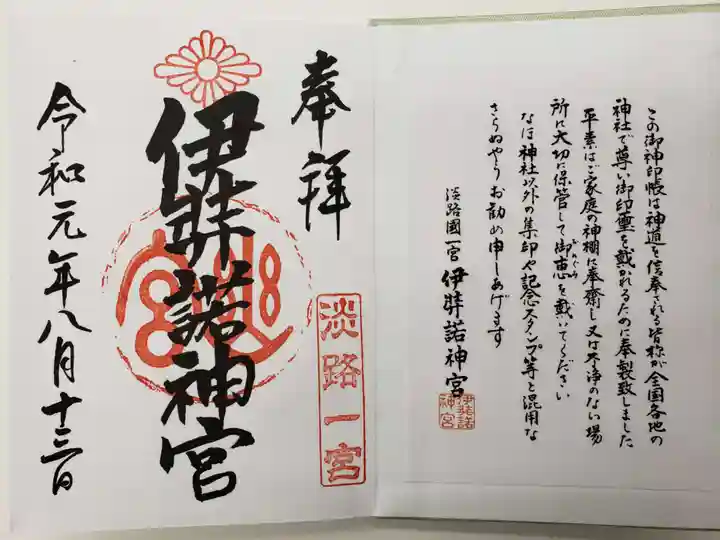 この御神印帳は神道を信奉される皆様が全国各地の
神社で尊い御印璽を戴かれるために奉製致しました
平素はご家庭の神棚に奉齋し又は不浄のない場
所に大切に保管して御恵を戴いてください
なほ神社以外の集印や記念スタンプ等と混用な
さらぬやうお勧め申しあげます
淡路國一宮 伊弉諾神宮
伊弉諾
神宮
奉拝
淡路一宮
伊弉諾神宮
令和元年八月十三日